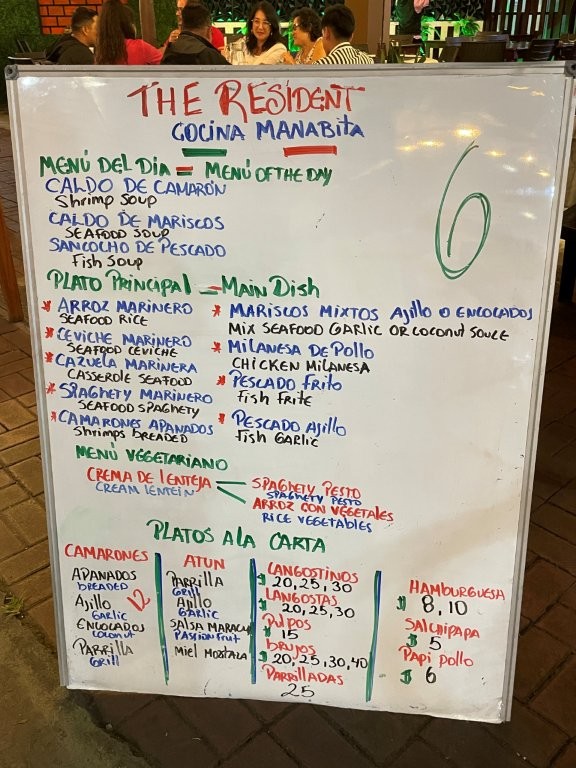 THE RESIDENT
COCINA MANABITA
6
MENÚ DEL DIA = MENÚ OF THE DAY
CALDO DE CAMARÓN
Shrimp Soup
CALDO DE MARISCOS
SEAFOOD SOUP
SANCOCHO DE PESCADO
Fish Soup
PLATO PRINCIPAL = MAIN DISH
* ARROZ MARINERO
SEAFOOD RICE
* CEVICHE MARINERO
SEAFOOD CEVICHE
* CAZUELA MARINERA
CASSEROLE SEAFOOD
* SPAGHETY MARINERO
SEAFOOD SPAGHETY
* CAMARONES APANADOS
Shrimps BREADED
* MARISCOS MIXTOS AJILLO O ENCOCADOS
MIX SEAFOOD GARLIC OR COCONUT SOUCE
* MILANESA DE POLLO
CHICKEN MILANESA
* PESCADO FRITO
Fish FRITE
* PESCADO AJILLO
Fish GARLIC
MENÚ VEGETARIANO
CREMA DE LENTEJA
CREAM LENTEIN
SPAGHETY PESTO
SPAGHETY PESTO
ARROZ CON VEGETALES
RICE VEGETABLES
PLATOS A LA CARTA
CAMARONES
APANADOS
BREADED
AJILLO
GARLIC
ENCOCADOS
COCONUT
PARRILLA
GRILL
12
ATUN
PARRILLA
GRILL
AJILLO
GARLIC
SALSA MARACU
PASSION FRUIT
MIEL MOSTAZA
LANGOSTINOS
$ 20, 25, 30
LANGOSTAS
$ 20, 25, 30
PULPOS
$ 15
BRUJOS
$ 20, 25, 30, 40
PARRILLADAS
25
HAMBURGUESA
$ 8, 10
SALCHIPAPA
$ 5
PAPI POLLO
$ 6